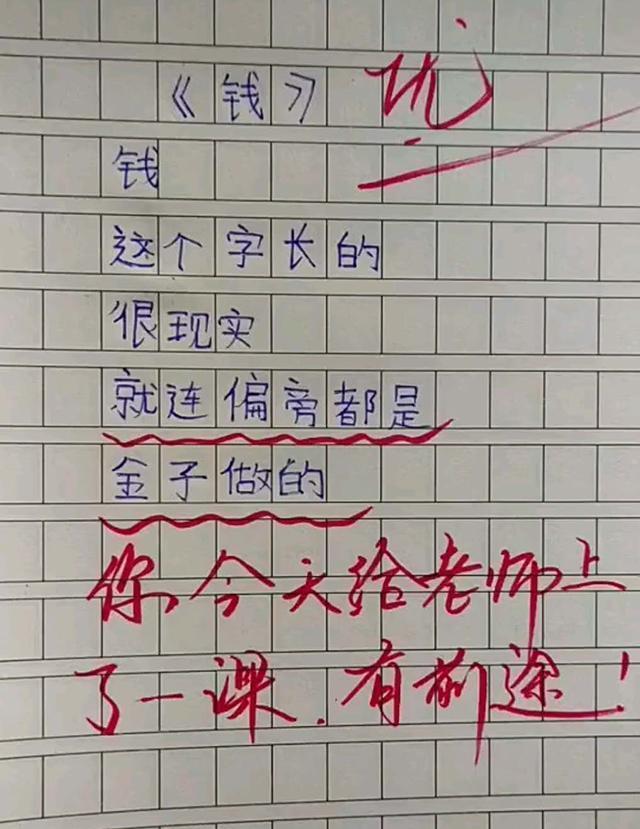 《钱》 优
钱
这个字长的
很现实
就连偏旁都是
金子做的
你今天给老师上
了一课.有前途!